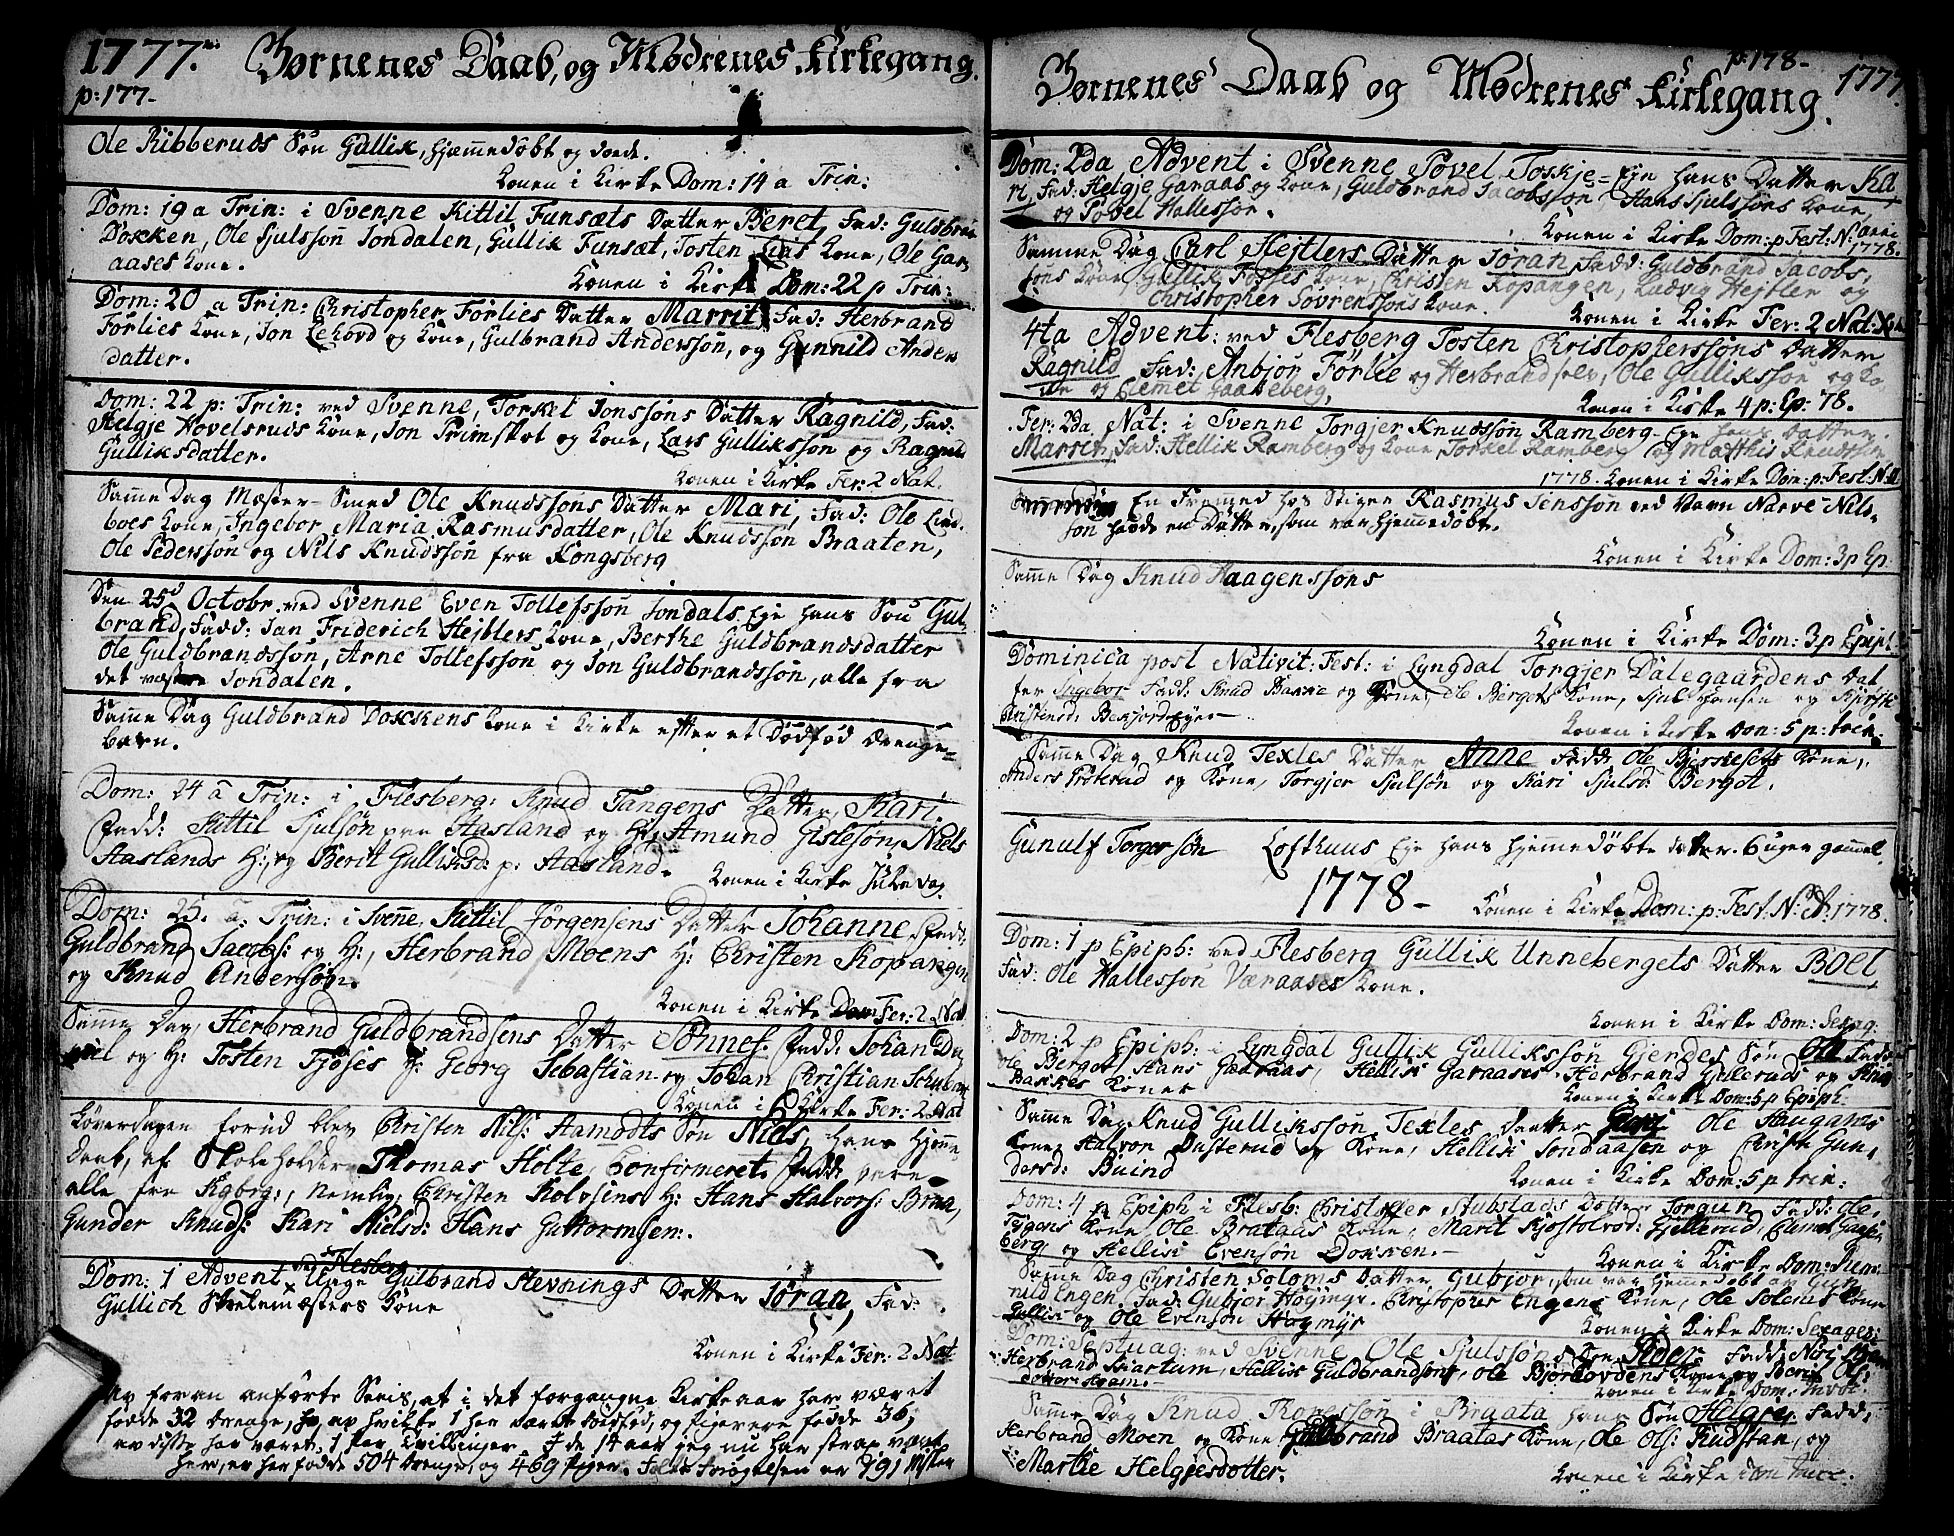 1777. Børnenes Daab, og Mødrenes Kirkegang.
p: 177-
Ole Kibberuds Søn Gullik, hjemmedøbt og døde.
Konen i Kirke Dom: 14 a Trin:
Dom: 19 a Trin: i Svenne Kittil Funsæts Datter Beret, Fad: Guldbran
Docken, Ole Siulssøn Jondalen, Gullik Funsæt, Tosten Lias Kone, Ole Gar
aases Kone.
Konen i Kirke Dom: 22 p Trin:
Dom: 20 a Trin: Christopher Førlies Datter Marrit, Fad: Herbrand
Førlies Kone, Jon Lekord og Kone, Gulbrand Anderssøn, og Gunnild Anders
datter.
Dom: 22 p: Trin: ved Svenne, Torkel Jonssøns Datter Ragnild, Fad:
Helgje Hovelsruds Kone, Jon Primskot og Kone, Lars Gulliksson og Ragnild
Gulliksdatter.
Konen i Kirke Fer: 2 Nat.
Samme Dag Mæster-Smed Ole Knudssøns Datter Mari, Fad: Ole Lind
boes Kone, Ingebor Maria Rasmusdatter, Ole Knudssøn Braaten,
Ole Pederssøn og Nils Knudssøn fra Kongsberg
Den 25d Octobr. ved Svenne Even Tollefssøn Jondals Eje hans Søn Gul
brand, Fadd: Jan Friderich Hejtlers Kone, Berthe Guldbrandsdatter
Ole Guldbrandssøn, Arne Tollefssøn og Jon Guldbrandssøn, alle fra
det væstre Jondalen.
Samme Dag Guldbrand Dockens Kone i Kirke efter et Dødfød Drenge-
barn.
Dom: 24 a Trin: i Flesberg: Knud Tangens Datter Kari.
Fadd: Kittil Sjulsøn paa Aasland og H: Amund Gislesøn, Niels
Aaslands H:, og Berit Gulliksd: p: Aasland.
Konen i Kirke Juledag
Dom: 25. a. Trin: i Svenne. Kittil Jørgensens Datter Johanne. Fadd:
Guldbrand Jacobs: og H:, Herbrand Moens H: Christen Kopangen
og Knud Andersøn.
Konen i Kirke Dom Fer: 2 Nat
Samme Dag, Herbrand Guldbrandsens Datter Sønnef. Fadd: Johan Da
niel og H: Tosten Fjøses H: Georg Sebastian og Johan Christian Schubar
Konen i Kirke Fer: 2 Nat
Løverdagen forud blev Christen Nils: Aamodts Søn Niels, hans Hjemme
daab, af Skoleholder Thomas Holte, Confirmeret. Fadd: vare
alle fra Kgberg:, Nemlig: Christen Kolvsens H: Hans Halvors: Braa,
Gunder Knuds: Kari Nielsd: Hans Guttormsen.
ved Flesberg
Dom: 1 Advent Aage Gulbrand Stevnings Datter Jøran, Fad:
Gullich Skrædemæsters Kone
Konen i Kirke Fer: 2 Nat
Af foran anførte Sees, at i det forgangne Kirkeaar har været
fødde 32 Drenge, af hvilke 1 har været dødfød, og Pigerne fødde 36,
av disse har været 1 par Tvillinger. I de 14 aar jeg nu har været
her, er her fødde 504 Drenge, og 469 Piger.
p: 178- 1777.
Børnenes Daab og Mødrenes Kirkegang.
Dom: 2da Advent i Svenne Povel Toskje-Eje hans Datter Ka
ri, Fad: Helgje Garaas og Kone, Guldbrand Jacobssøn, Hans Sjulssøns Kone,
og Povel Hallessøn.
Konen i Kirke Dom: p Fest: N: Anni
1778.
Samme Dag Carl Hejtlers Datter Jøran, Fadd: Guldbrand Jacobs,
søns Kone, Gullik Fosses Kone, Christen Kopangen, Ludvig Hejtler og
Christopher Sövrenssøns Kone.
Konen i Kirke Fer: 2 Nat: Xsti
4ta Advent: ved Flesberg Tosten Christopherssøns Datter
Ragnild Fad: Anbjør Førlie og Herbrand, Ole Gulliksson og Ko
ne og Clemet Gaaseberg.
Konen i Kirke 4 p: Ep: 78.
Fer: 2da Nat: i Svenne Torgjer Knudssøn Ramberg-Eje hans Datter
Marrit, Fad: Hellik Ramberg og Kone, Torkel Ramberg og Matthis Knudssøn
1778. Konen i Kirke Dom: p: Fest: N: A
Samme Dag En Fremmed hos Stigen Rasmus Jenssøn ved Navn Narve Nils-
søn hadde en Datter, som var hjemmedøbt.
Konen i Kirke Dom: 3 p Ep.
Samme Dag Knud Haagenssøns
Konen i Kirke Dom: 3 p Epiph.
Dominica post Nativit: Fest: i Lyngdal Torgjer Dalegaardens Dat
ter Ingebor Fadd: Knud Bakke og Kone, Ole Bergets Kone, Sjul Hansen og Kirstie
Christensd: Bekjordejer.
Konen i Kirke Dom: 5 p: trin.
Samme Dag Knud Texles Datter Anne Fadd: Ole Kone,
Anders og Kone, Torgjer Sjulsøn og Kari Sjulsd: Bergot.
Gunulf Torgersøn Lofthuus Eje hans hjemmedøbte datter. 6 uger gammel.
1778- Konen i Kirke Dom: p: Fest. N: A: 1778.
Dom: 1 p Epiph: ved Flesberg Gullik Unnebergets Datter Boel
Fad: Ole Hallessøn Væraases Kone.
Konen i Kirke Dom: Sexag:
Dom: 2 p Epiph: i Lyngdal Gullik Gulliksøn Gjendes Søn Ole Fadd:
Ole Bergot Hans Garaas, Hellik Garaases, Herbrand Gulleruds og Knud
Bakkes Koner
Konen i Kirke Dom: 5 p Epiph:
Samme Dag Knud Gulliksøn Texles Datter Guri Ole Haugams
Kone Halvor Dusterud og Kone, Hellik Jondaasen og Christi Gun,
dersd: Buind
Konen i Kirke Dom: 5 p trin:
Dom: 4 p Epiph i Flesb: Christopher Stubstads Datter Jorgun Fadd: Ole
Tygens Kone Ole Brataas Kone, Marit Kjøstolvsd: Gjellerud, Clemet Gaase
berg, og Hellik Evensøn Dokken.
Konen i Kirke Dom:
Samme Dag Christen Soloms Datter Gubjør, som var hjemmedøbt av Gun
nild Engen. Fad: Gubjør Høymyr. Christopher Engens Kone, Ole Solems Kone
Gullik og Ole Evensøn Høgmyr
Konen i Kirke Dom: Sexages:
Dom: Septuag: ved Svenne Ole Sjulssøns Søn Fadd:
Herbrand Svartum, Hellik Guldbrandsøns, Ole Bjørkovdens Kone og Berit Ols:
datter
Konen i Kirke Dom: Invoc.
Samme Dag Knud Thoressøn i Braata hans Søn Helge, Fadd:
Herbrand Moen og Kone Guldbrand Braates Kone, Ole Ols: Rudstan, og
Marthe Helgjesdotter.
Konen i Kirke